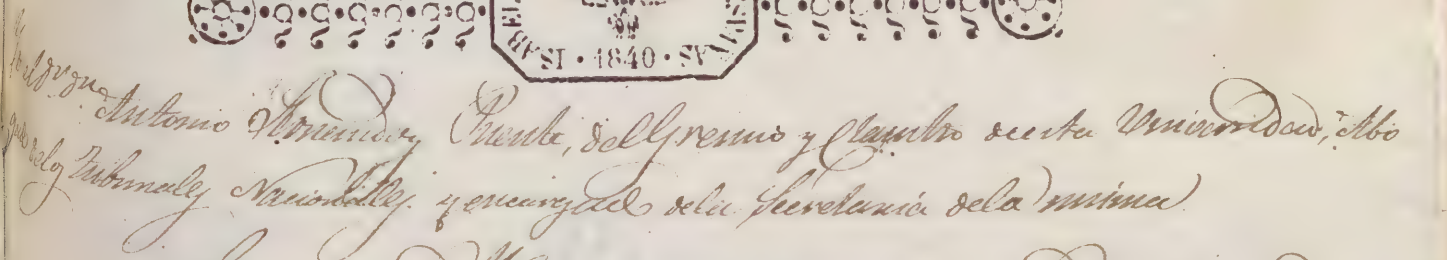 ISABEL
· 1840 ·
Antonio y Puente, del Gremio y Claustro de esta Universidad, Abo
gado delos Tribunales Nacionales y encargado dela Secretaría dela misma